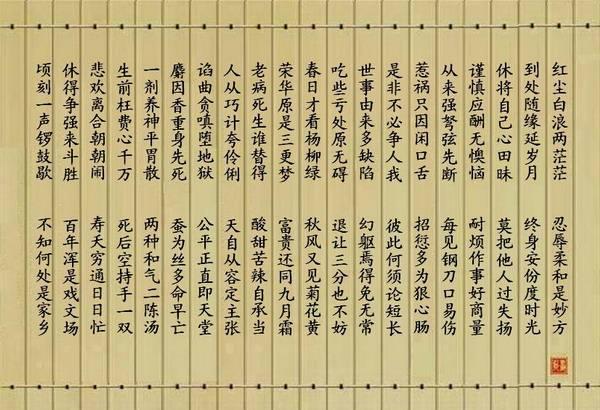 红尘白浪两茫茫 忍辱柔和是妙方
到处随缘延岁月 终身安份度时光
休将自己心田昧 莫把他人过失扬
谨慎应酬无懊恼 耐烦作事好商量
从来强弩弦先断 每见钢刀口易伤
惹祸只因闲口舌 招愆多为狠心肠
是非不必争人我 彼此何须论短长
世事由来多缺陷 幻躯焉得免无常
吃些亏处原无碍 退让三分也不妨
春日才看杨柳绿 秋风又见菊花黄
荣华原是三更梦 富贵还同九月霜
老病死生谁替得 酸甜苦辣自承当
人从巧计夸伶俐 天自从容定主张
谄曲贪嗔堕地狱 公平正直即天堂
麝因香重身先死 蚕为丝多命早亡
一剂养神平胃散 两种和气二陈汤
生前枉费心千万 死后空持手一双
悲欢离合朝朝闹 寿夭穷通日日忙
休得争强来斗胜 百年浑是戏文场
顷刻一声锣鼓歇 不知何处是家乡